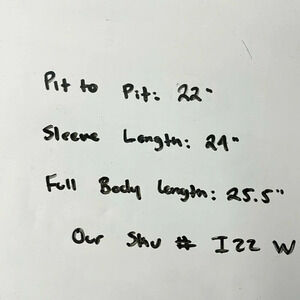 Pit to Pit: 22"
Sleeve Length: 24"
Full Body Length: 25.5"
Our Sku # I22 W